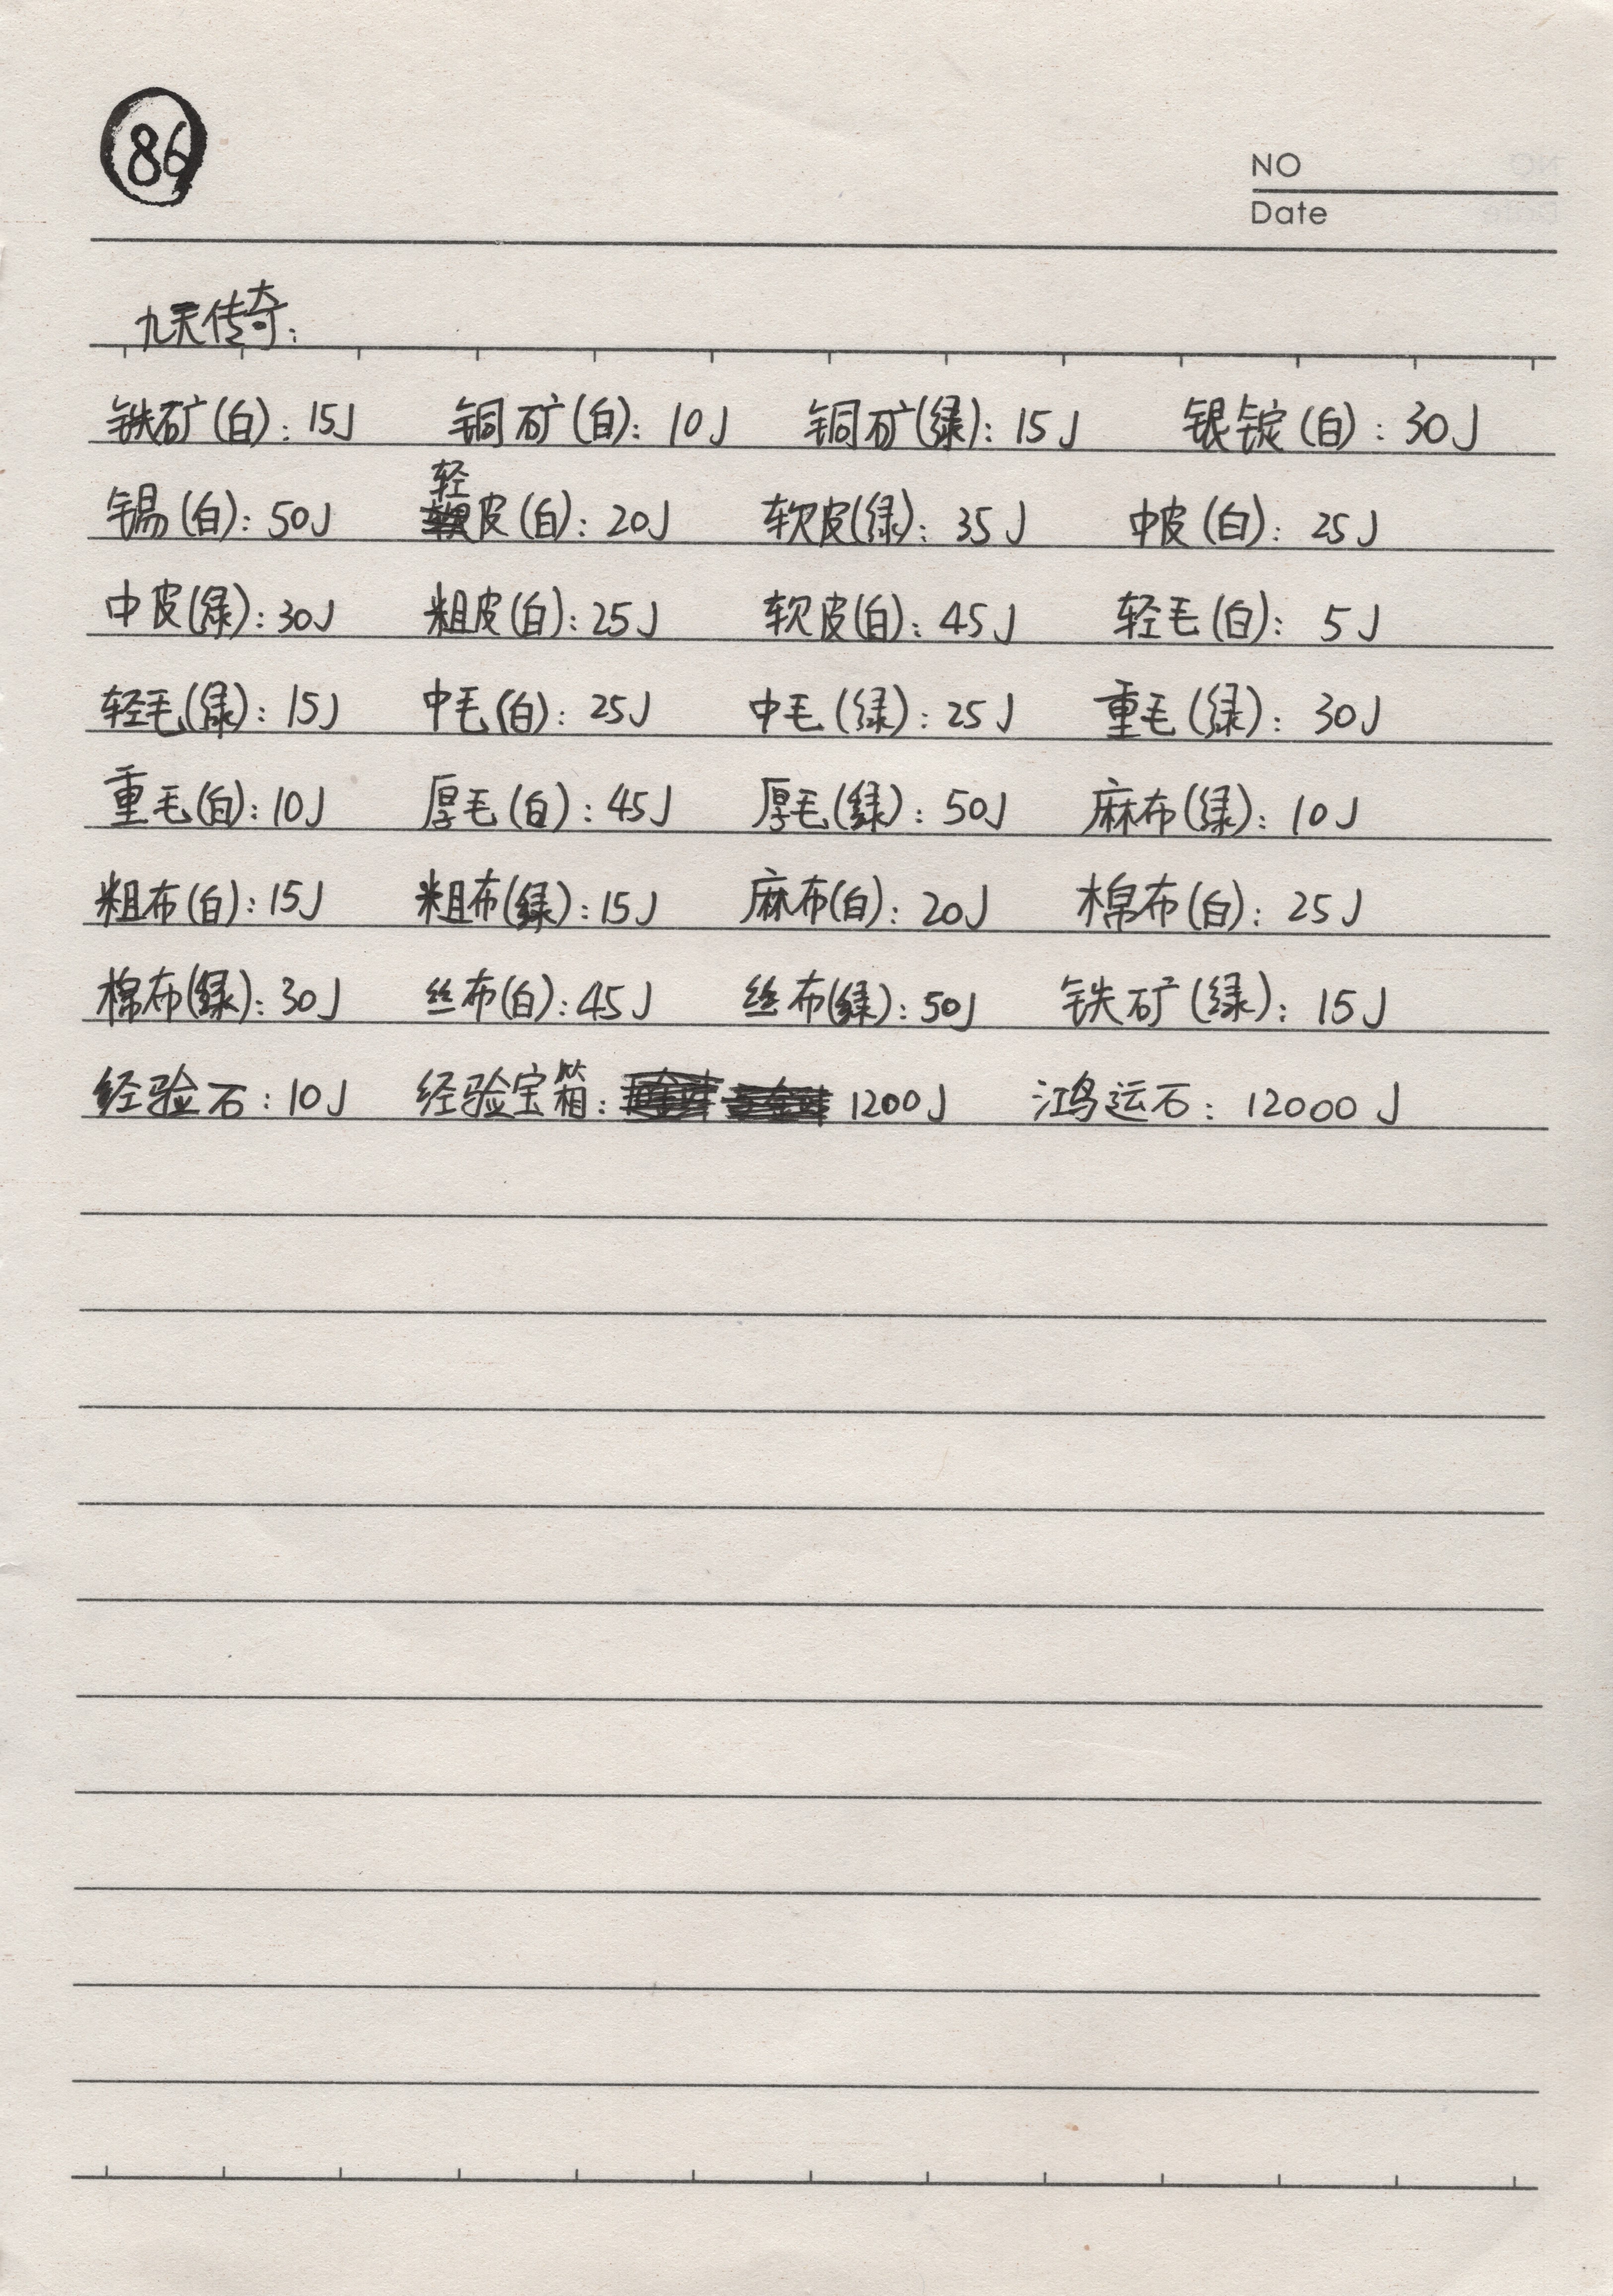 86
NO
Date
九天传奇:
铁矿(白): 15J 铜矿(白): 10J 铜矿(绿): 15J 银锭(白): 30J
锡(白): 50J 轻皮(白): 20J 软皮(绿): 35J 中皮(白): 25J
中皮(绿): 30J 粗皮(白): 25J 软皮(白): 45J 轻毛(白): 5J
轻毛(绿): 15J 中毛(白): 25J 中毛(绿): 25J 重毛(绿): 30J
重毛(白): 10J 厚毛(白): 45J 厚毛(绿): 50J 麻布(绿): 10J
粗布(白): 15J 粗布(绿): 15J 麻布(白): 20J 棉布(白): 25J
棉布(绿): 30J 丝布(白): 45J 丝布(绿): 50J 铁矿(绿): 15J
经验石: 10J 经验宝箱: 1200J 鸿运石: 12000J